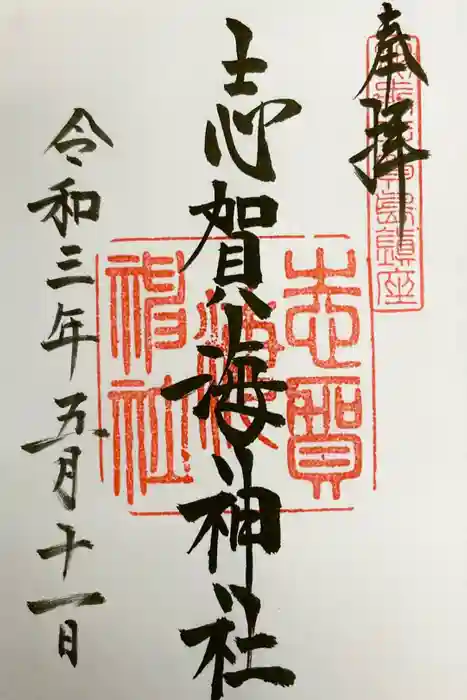 奉拝
志賀海神社
令和三年五月十一日
志賀
海
神社